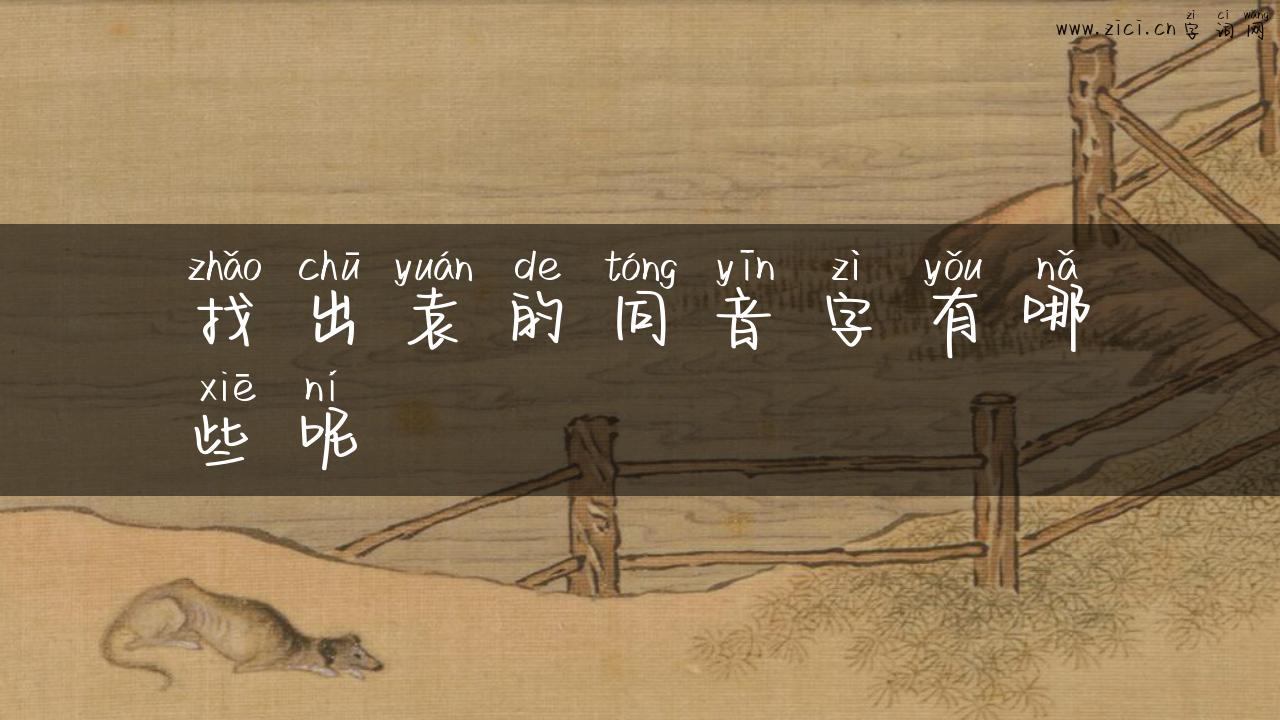 zi ci wang
www.zici.cn 字词网
zhǎo chū yuán de tóng yīn zì yǒu nǎ
找出袁的同音字有哪
xiē ní
些呢